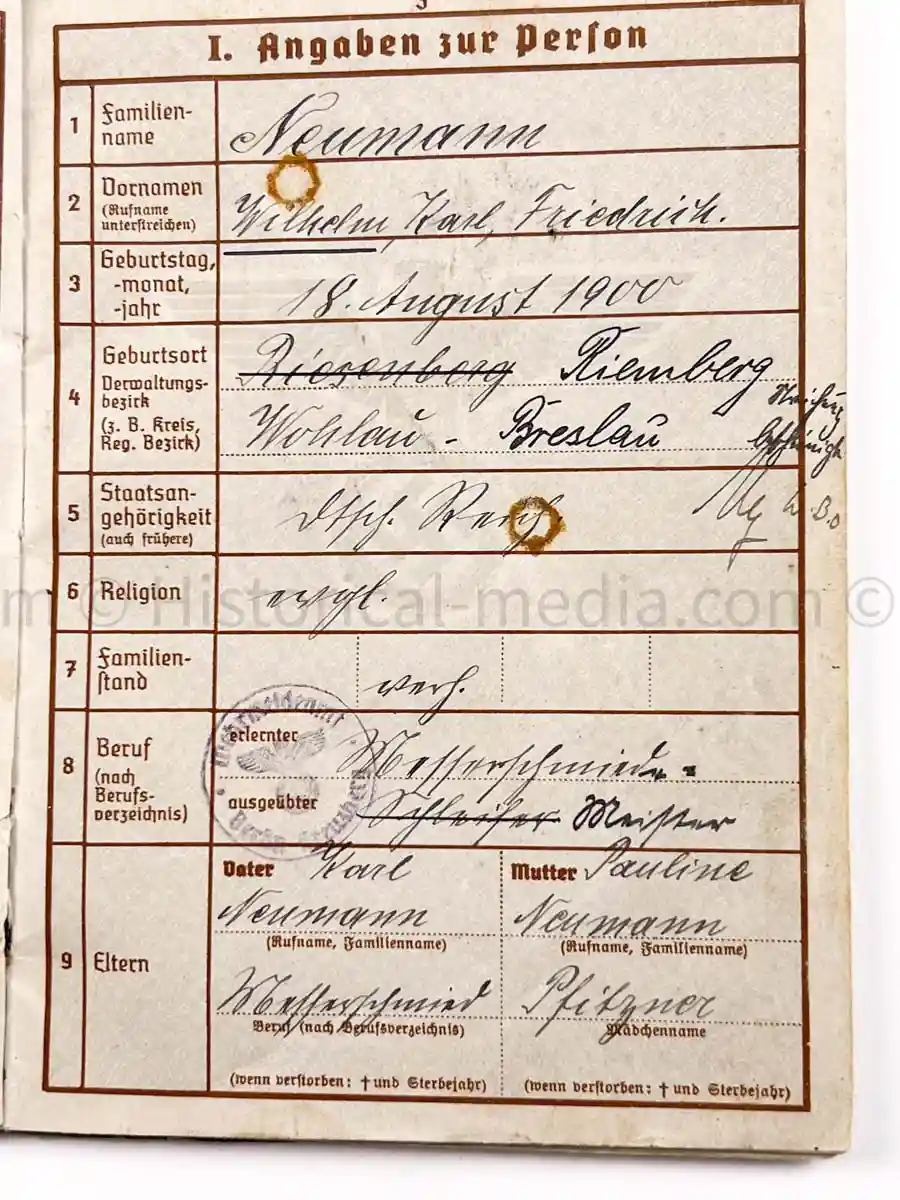 I. Angaben zur Person
1 Familien-
name
Neumann
2 Vornamen
(Rufname
unterstreichen)
Wilhelm, Karl, Friedrich.
3 Geburtstag,
-monat,
-jahr
18. August 1900
4 Geburtsort
Verwaltungs-
bezirk
(z. B. Kreis,
Reg. Bezirk)
Riesenberg Riemberg
Wohlau - Breslau
Streichung
5 Staatsan-
gehörigkeit
(auch frühere)
dtsch. Reich
6 Religion
evgl.
© Historical-media.com ©
7 Familien-
stand
verh.
8 Beruf
(nach
Berufs-
verzeichnis)
Wehrmeldeamt
Berlin Kreuzberg
erlernter Messerschmied
ausgeübter Schleifer Meister
9 Eltern
Vater Karl
Neumann
(Rufname, Familienname)
Messerschmied
Beruf (nach Berufsverzeichnis)
(wenn verstorben: † und Sterbejahr)
Mutter Pauline
Neumann
(Rufname, Familienname)
Pfitzner
Mädchenname
(wenn verstorben: † und Sterbejahr)